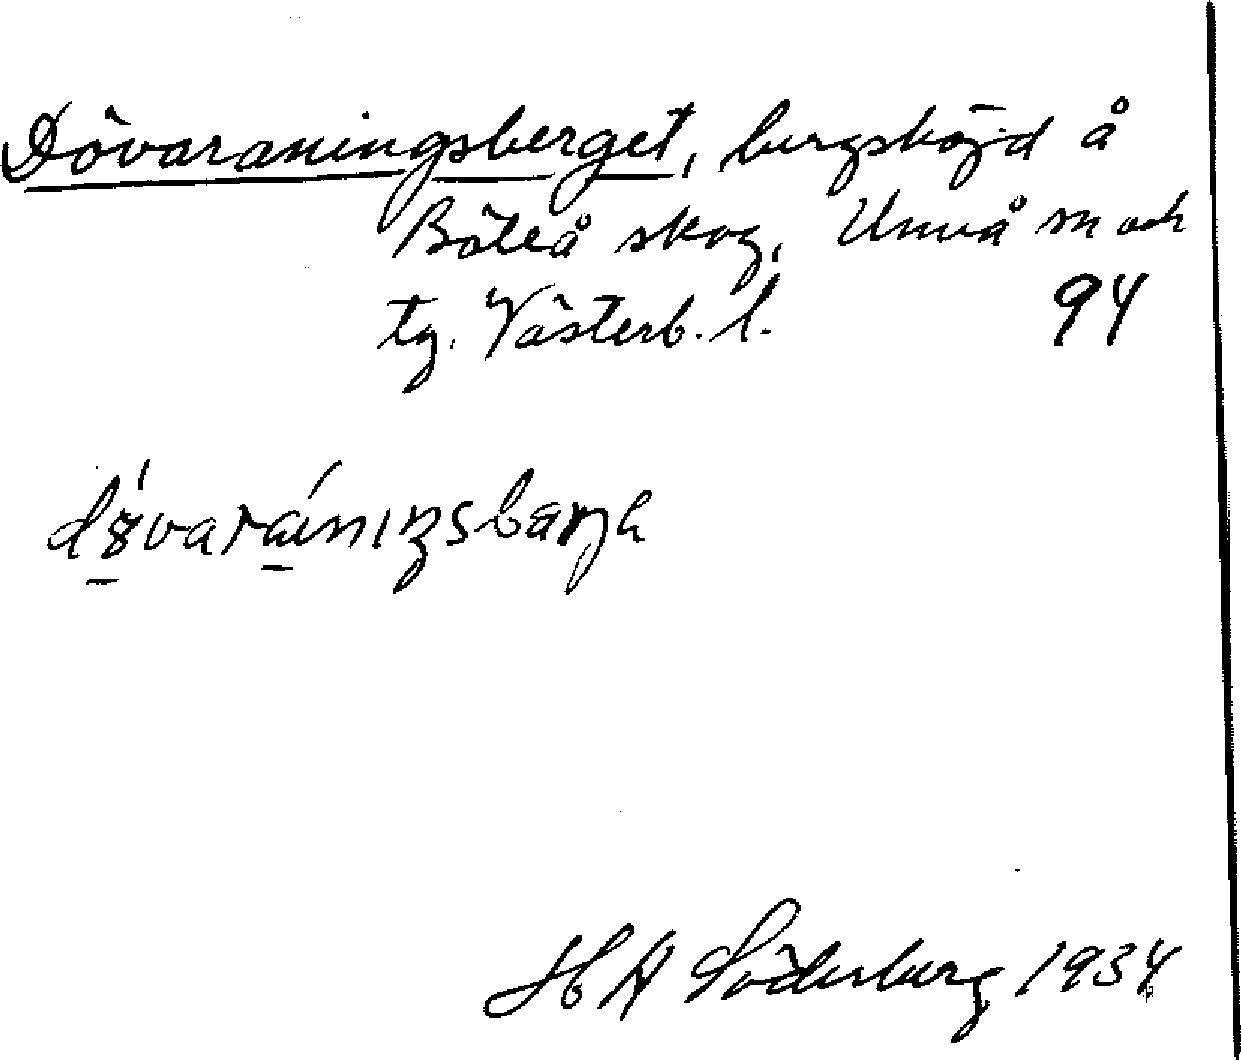 Dövaraningsberget, bergshöjd å
Böleå skog, Umeå sn och
tg. Västerb. l. 94
H A Söderberg 1934